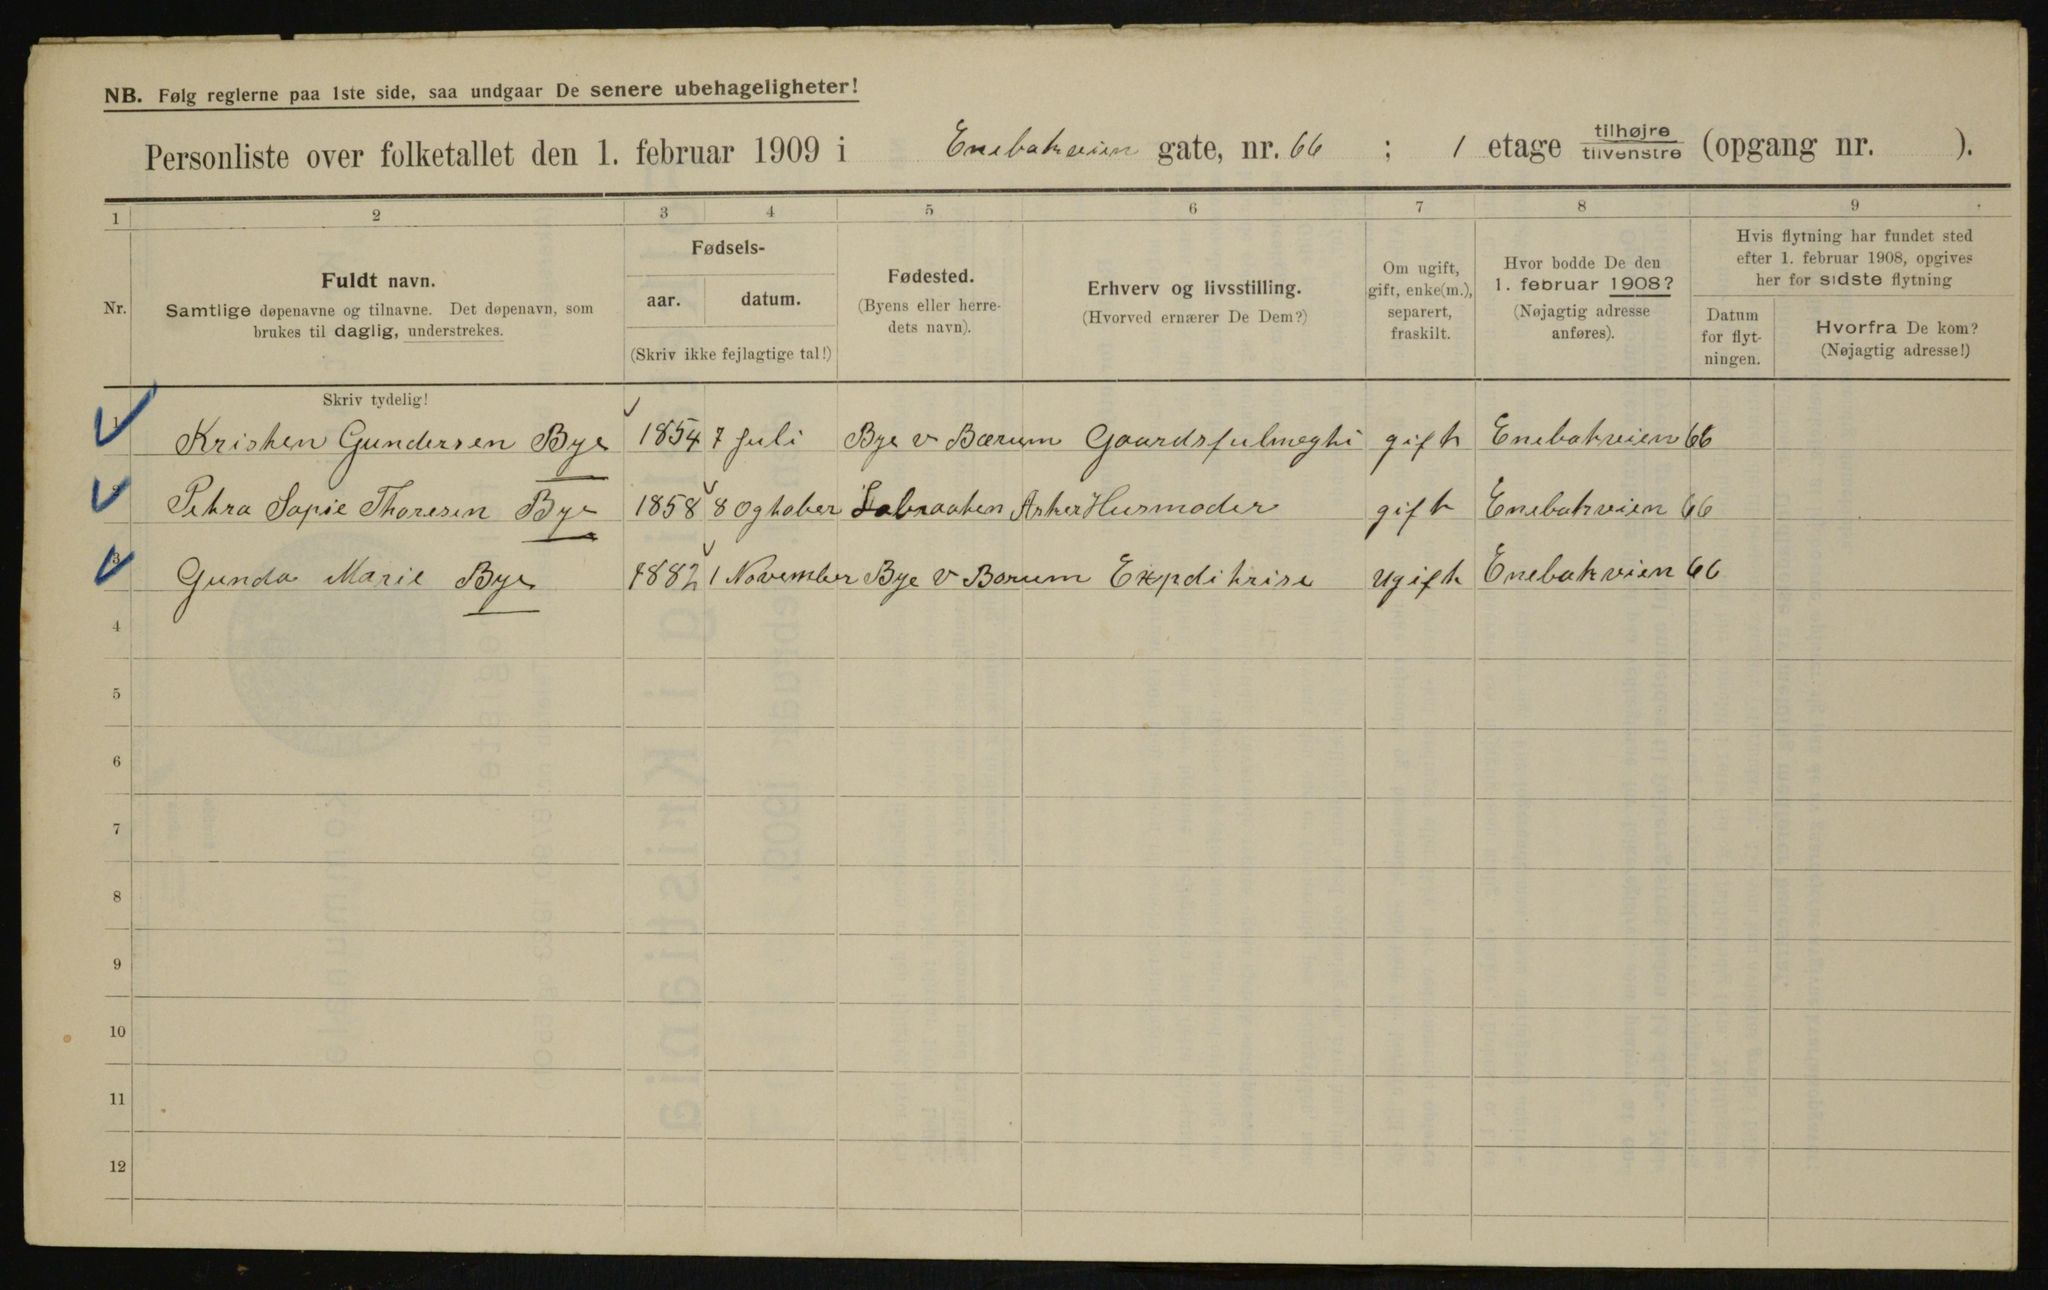 NB. Følg reglerne paa 1ste side, saa undgaar De senere ubehageligheter!
Personliste over folketallet den 1. februar 1909 i Enebakveien gate, nr. 66 ; 1 etage tilhøjre tilvenstre (opgang nr. ).
1 2 3 4 5 6 7 8 9
Nr.
Fuldt navn.
Samtlige døpenavne og tilnavne. Det døpenavn, som
brukes til daglig, understrekes.
Skriv tydelig!
Fødsels-
aar. datum.
(Skriv ikke fejlagtige tal!)
Fødested.
(Byens eller herre-
dets navn).
Erhverv og livsstilling.
(Hvorved ernærer De Dem?)
Om ugift,
gift, enke(m.),
separert,
fraskilt.
Hvor bodde De den
1. februar 1908?
(Nøjagtig adresse
anføres).
Hvis flytning har fundet sted
efter 1. februar 1908, opgives
her for sidste flytning
Datum
for flyt-
ningen.
Hvorfra De kom?
(Nøjagtig adresse!)
1 Kristen Gundersen Bye 1854 7 Juli Bye v Bærum Gaardsfulmegti gift Enebakveien 66
2 Petra Sopie Thoresen Bye 1858 8 Ogtober Asker Husmoder gift Enebakveien 66
3 Gunda Marie Bye 1882 1 November Bye v Barum Expditrise ugift Enebakveien 66
4
5
6
7
8
9
10
11
12